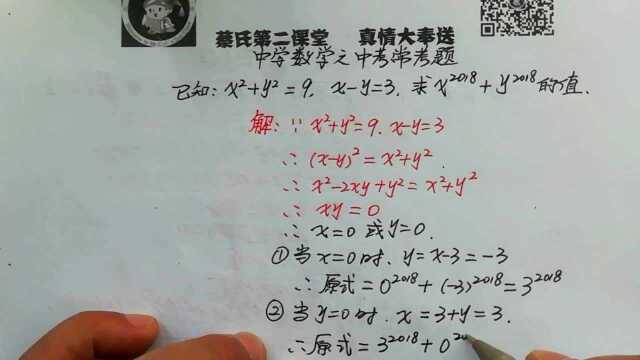 蔡氏第二课堂 真情大奉送
中学数学之中考常考题
已知: x²+y²=9, x-y=3, 求x²⁰¹⁸+y²⁰¹⁸的值.
解: ∵ x²+y²=9, x-y=3
∴ (x-y)²=x²+y²
∴ x²-2xy+y²=x²+y²
∴ xy=0
∴ x=0或y=0.
①当x=0时, y=x-3=-3
∴原式=0²⁰¹⁸+(-3)²⁰¹⁸=3²⁰¹⁸
②当y=0时, x=3+y=3.
∴原式=3²⁰¹⁸+0²⁰